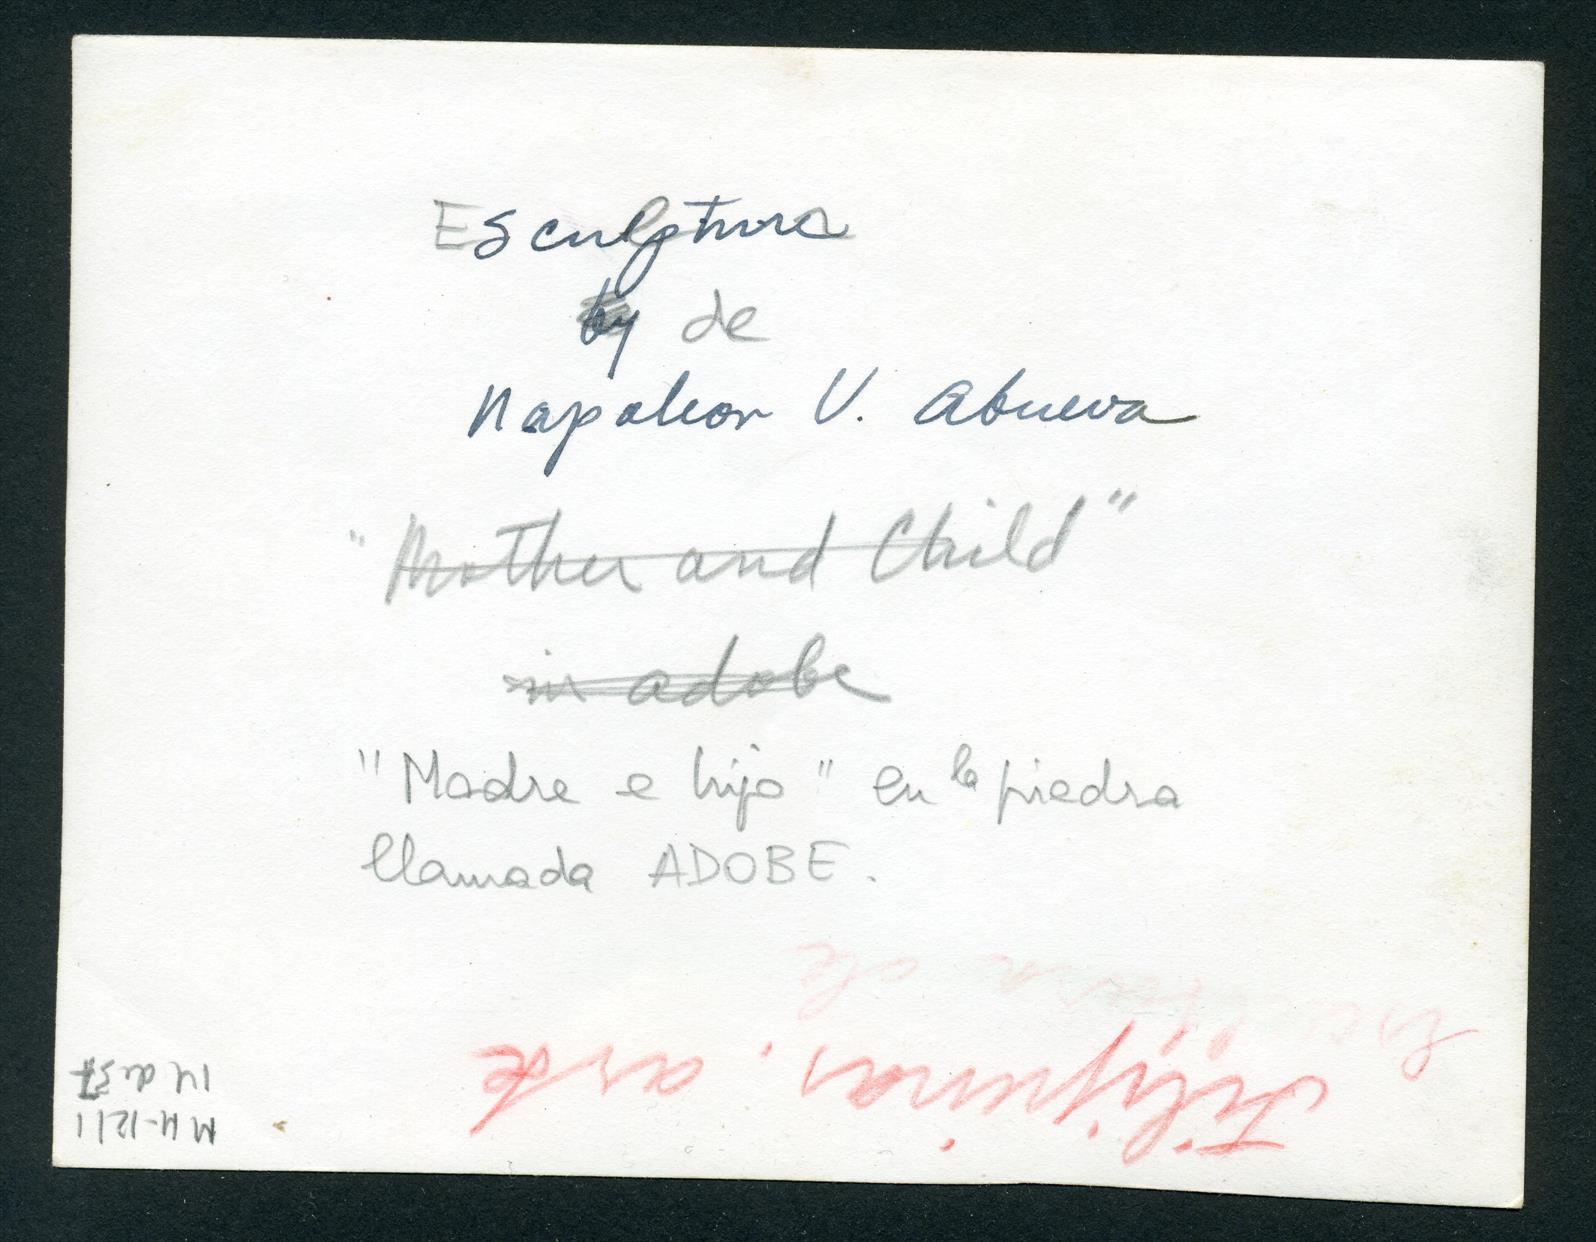 Esculptura
by de
Napoleon V. Abueva
"Mother and Child"
in adobe
"Madre e hijo" en la piedra
llamada ADOBE.
Filipinas. arte
escultura de
M4-1211
14 de 57